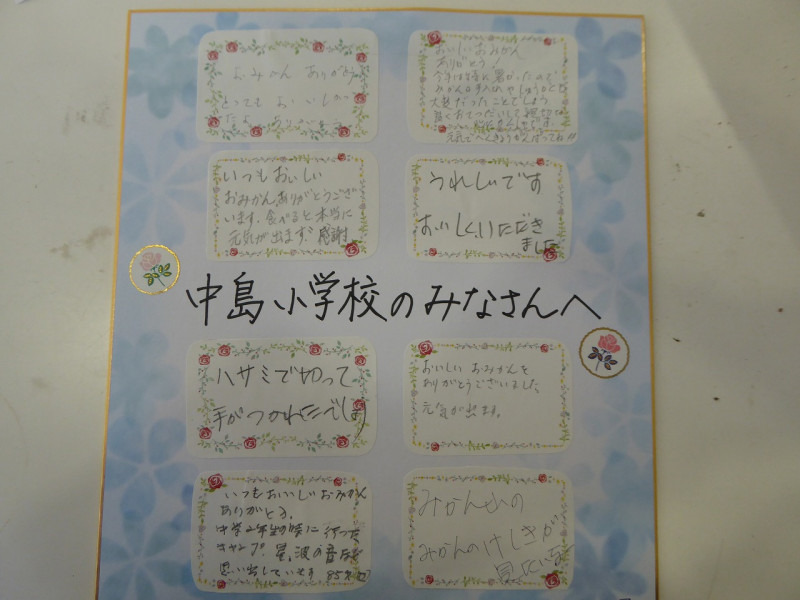 おみかん ありがとう
とっても おいしかっ
たよ ありがとう
おいしいおみかん
ありがとう！
今年は特に暑かったので
大変だったことでしょう
元気でべんきょうがんばってね!!
いつもおいしい
おみかんありがとうござ
います。食べると本当に
元気が出ます。感謝
うれしいです
おいしくいただき
ました
中島小学校のみなさんへ
ハサミで切って
手がつかれたでしょ
おいしい おみかんを
ありがとうございました
元気が出ます。
いつもおいしいおみかん
ありがとう。
中学2年生の時に行った
キャンプ 星、波の音など
思い出しています 85才
みかん山の
みかんのけしきが
見たいな